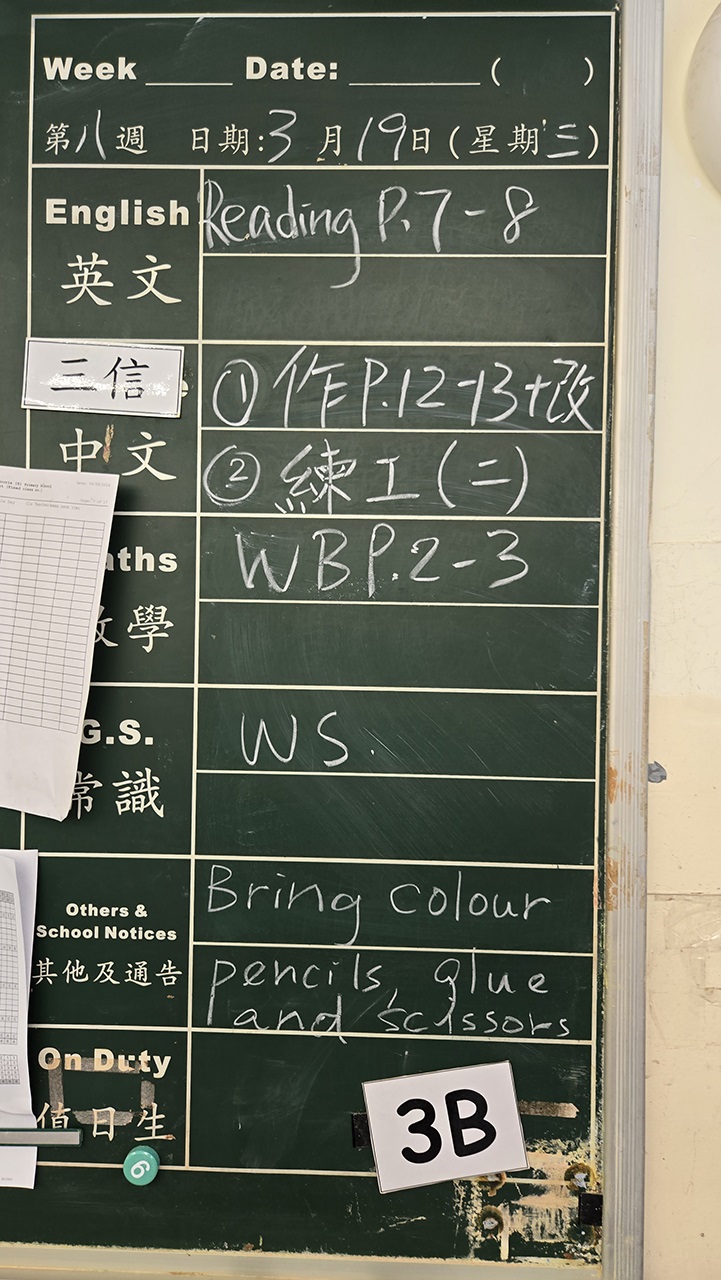 Week ____ Date: ______ ( )
第八週 日期:3月19日(星期三)
English Reading P.7-8
英文
三信
① 作P.12-13+改
中文
② 練工(二)
aths WB P.2-3
學
G.S. WS.
常識
Others & School Notices
其他及通告
Bring colour
pencils, glue
and scissors
On Duty
值日生
3B
6